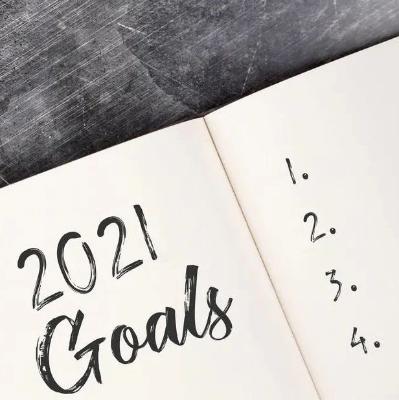 2021
Goals
1.
2.
3.
4.